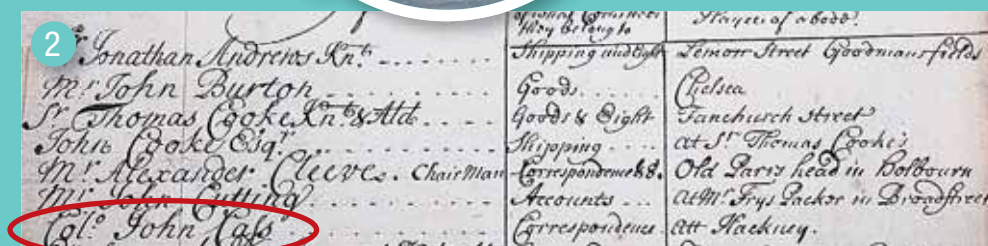 of what Committees
they belong to
Places of abode.
2
Sr. Jonathan Andrews Knt. Shipping and Eight Lemon Street Goodmansfields
Mr. John Burton Goods Chelsea
Sr. Thomas Cooke Knt. & Ald. Goods & Eight Fanchurch street
John Cooke Esqr. Shipping at Sr. Thomas Cooke's
Mr. Alexander Cleeve. Chair Man Correspondence & 8. Old Paris head in Holbourn
Mr. John Cutting Accounts at Mr. Frys Packer in Broadstreet
Collo. John Cass Correspondence. att Hackney.